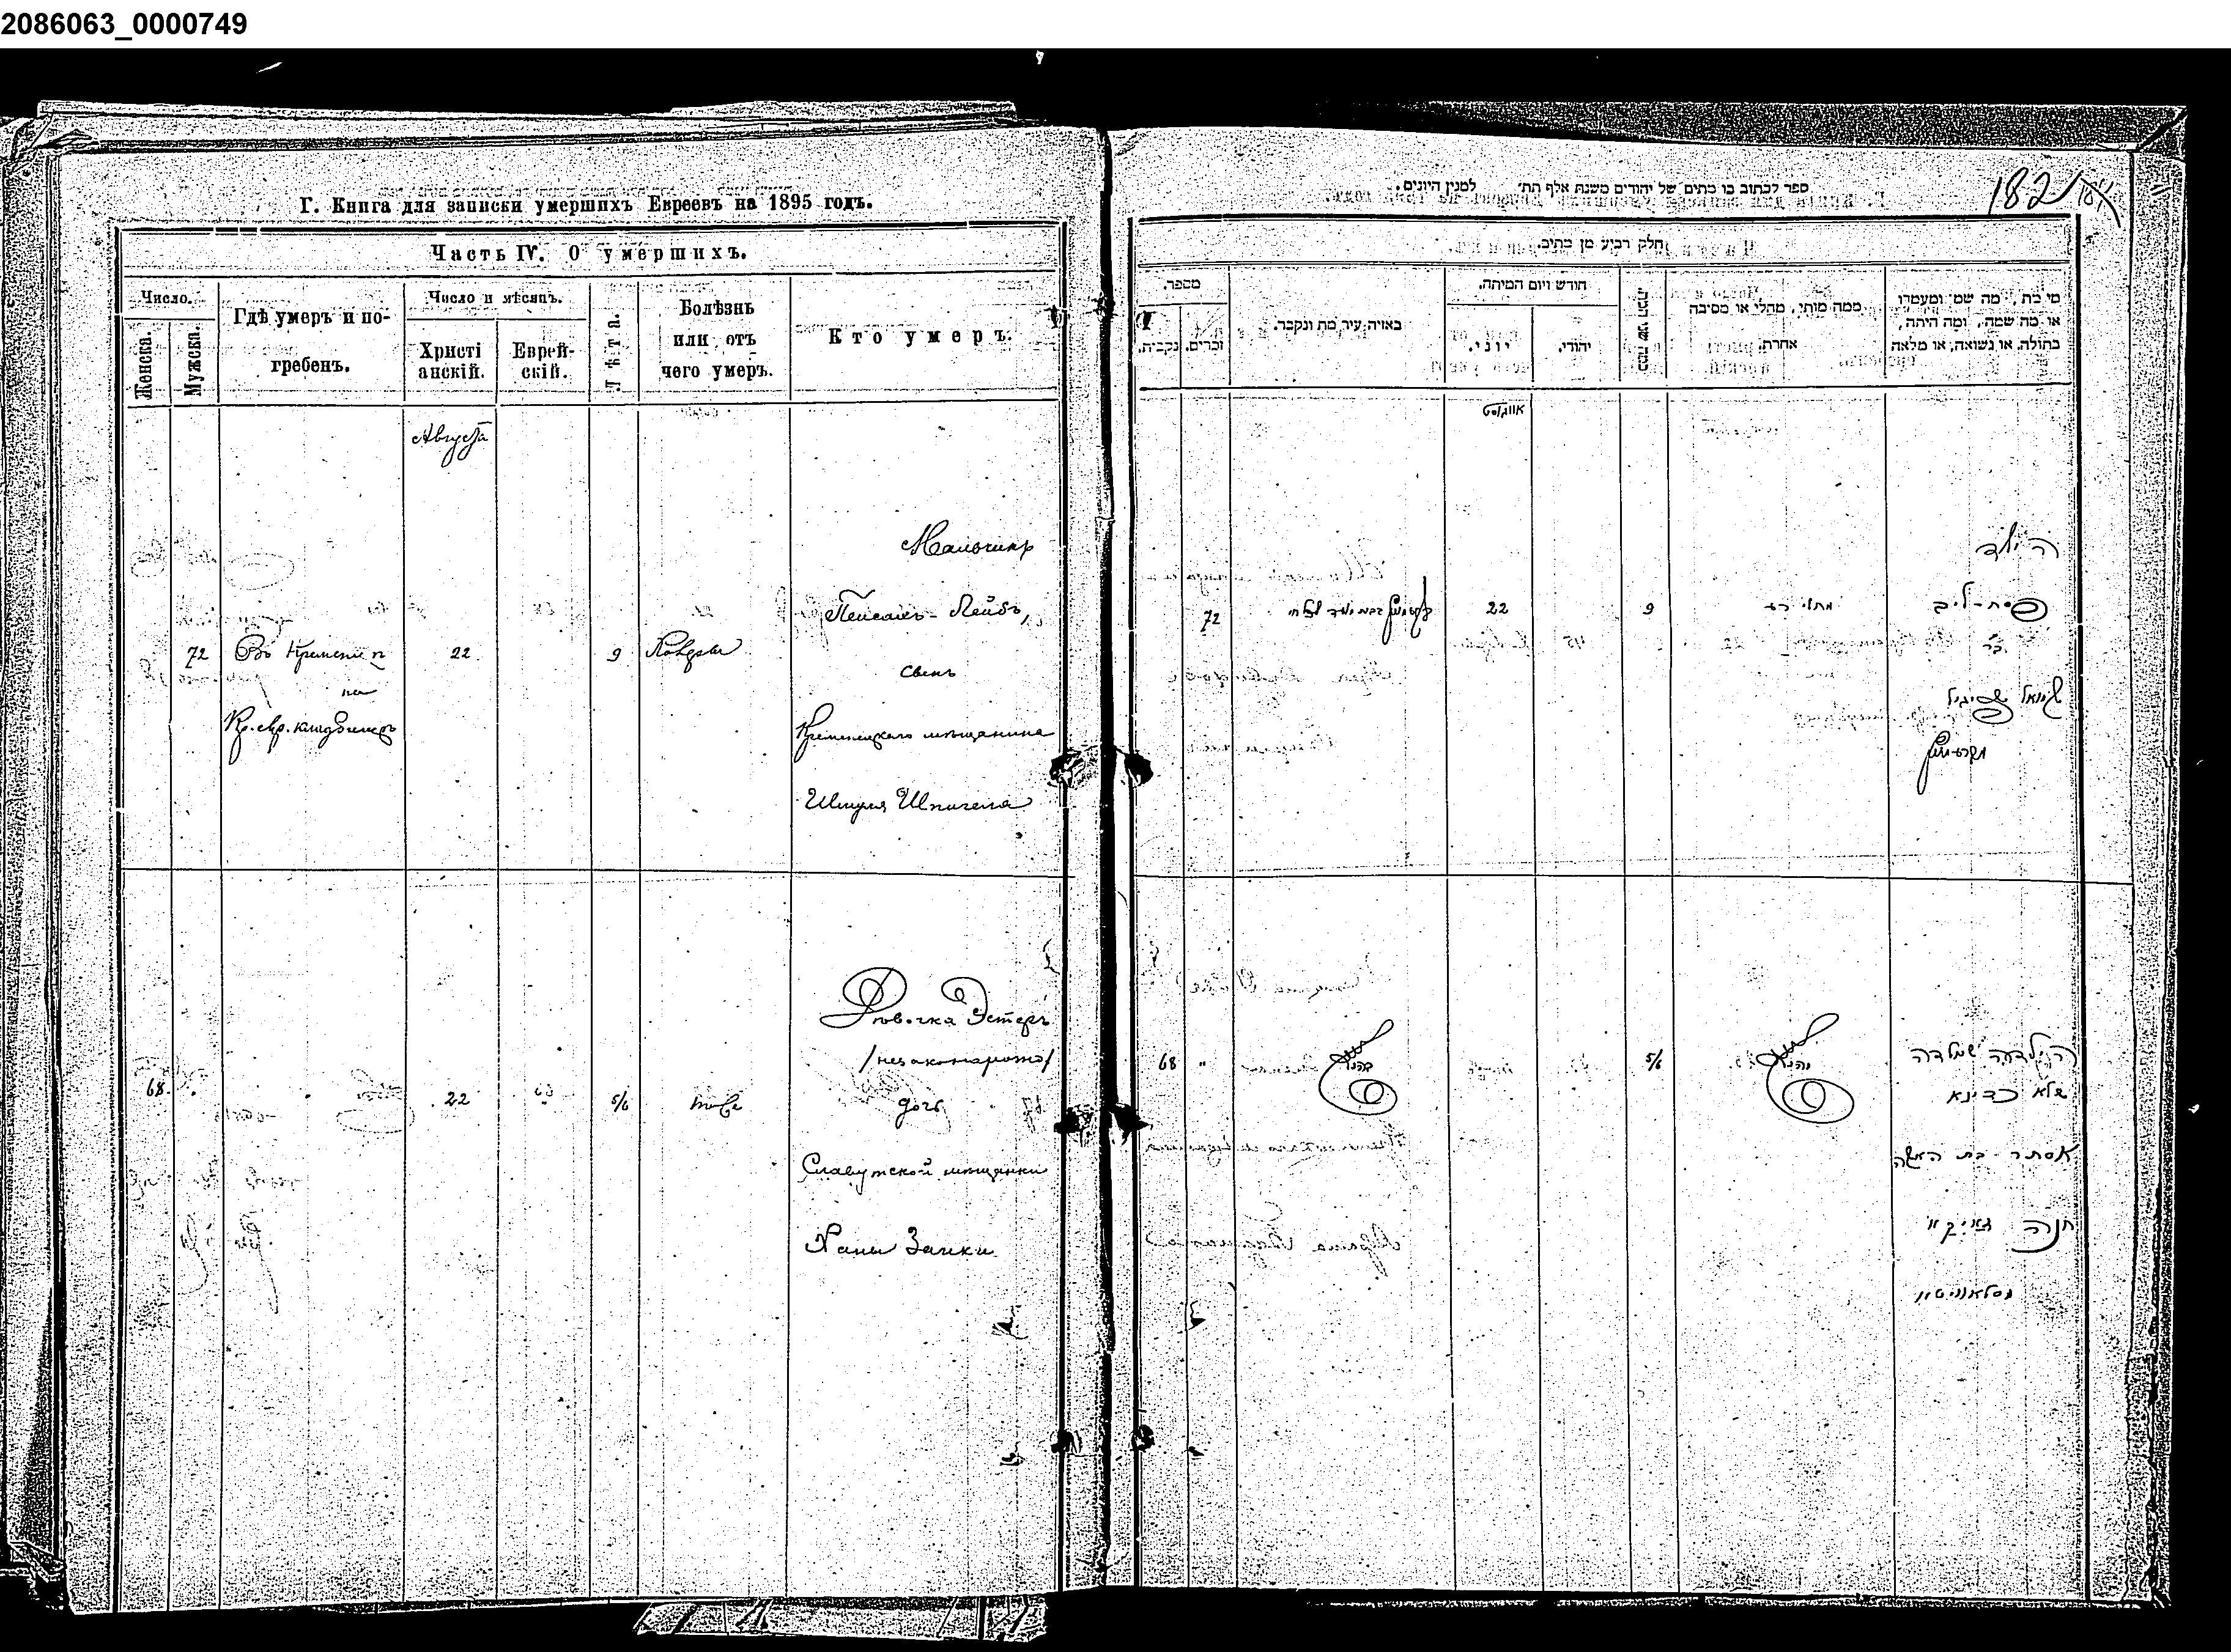 2086063_0000749
Г. Книга для записки умершихъ Евреевъ на 1895 годъ.
Часть IV. О умершихъ.
Число.
Женска.
Мужска.
Гдѣ умеръ и по-
гребенъ.
Число и мѣсяцъ.
Христі
анскій.
Еврей-
скій.
Лѣта.
Болѣзнь
или отъ
чего умеръ.
Кто умеръ.
Августа
72
Во Кременц
на
Кр. евр. кладбищѣ
22
9
Мальчикъ
Пейсахъ-Лейбъ,
сынъ
Кременецкаго мѣщанина
Шмуля Шпигеля
68
22
5/6
тоже
Дѣвочка Эстеръ
дочь
Славутской мѣщанки
Ханы Заики
182
ספר לכתוב בו מתים של יהודים משנת אלף תת׳ למנין היונים.
חלק רביע מן מתים.
מספר.
נקבית.
זכרים.
באיזה עיר מת ונקבר.
חודש ויום המיתה.
יוני.
יהודי.
כמה שני המת.
ממה מותי, מחלי או מסיבה
אחרת.
מי מת, מה שמו ומעמדו
או מה שמה, ומה היתה,
בתולה, או נשואה, או מלאה
אווגוסט
72
22
9
הילד
פסח-ליב
בר
שמואל שפיגיל
68
"
5/6
שלא כדינא
אסתר בת האשה
חנה זאיקא